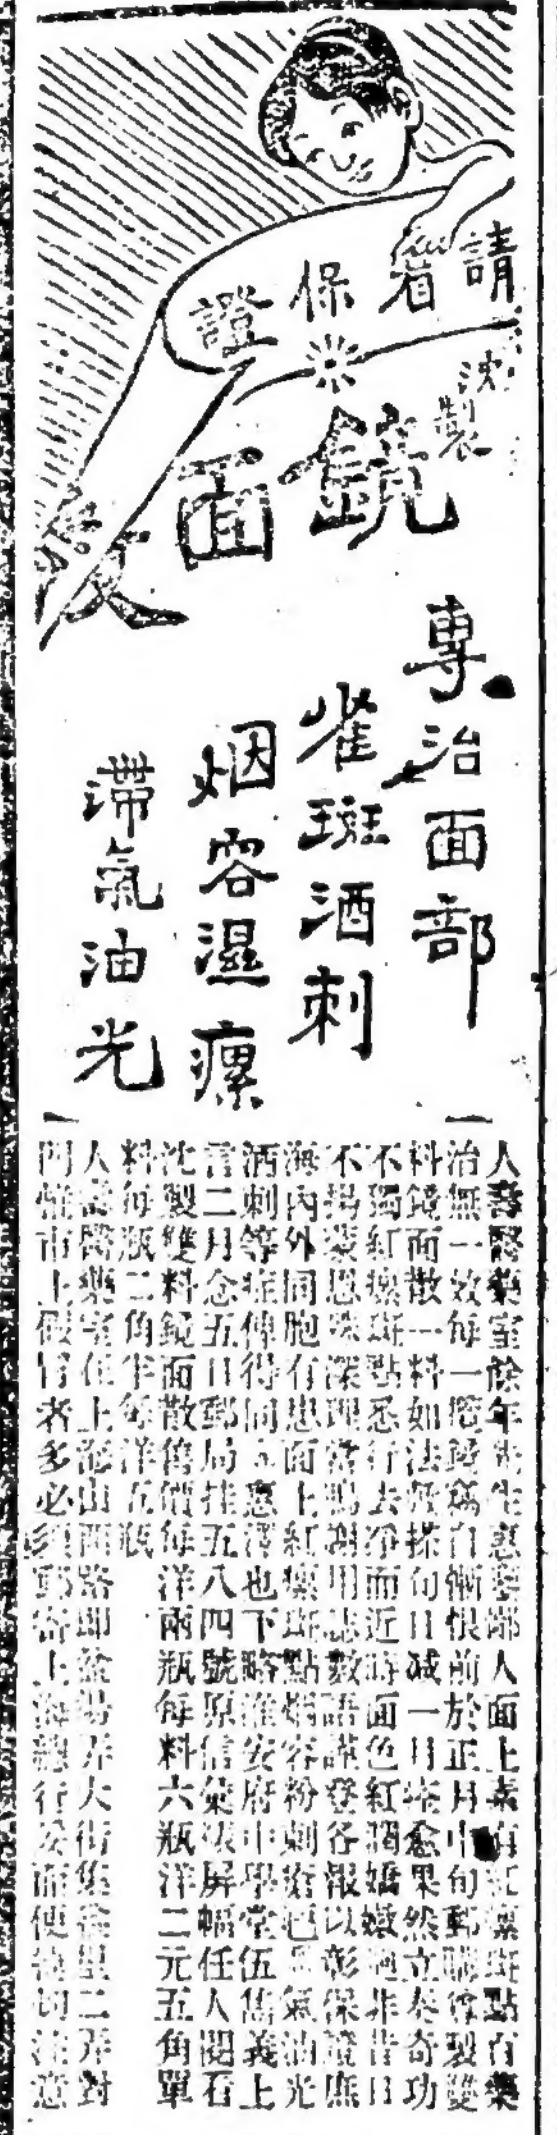 請看保證
沈製
鏡面散
專治面部
雀斑酒刺
烟容濕瘰
滯氣油光
人壽醫藥室餘年先生惠鑒鄙人面上素有紅瘰斑點百藥
治無一效每一攬鏡為自慚恨前於正月中旬郵購雙
料鏡面散一料如法敷搽旬日减一月痊愈果然立奏奇功
不獨紅瘰斑點悉行去淨而近時面色紅潤嬌嫩非昔日
不揚裝恩深理當鳴謝用誌數語謹登各報以彰保證庶
海內外同胞有患面上紅瘰斑點烟容粉刺氣油光
酒刺等症俾得同惠澤也下略淮安府中學堂伍義上
言二月念五日郵局挂五八四號原信屏幅任人閱看
沈製雙料鏡面散售價每洋兩瓶每料六瓶洋二元五角單
料每瓶二角半每洋五瓶
人壽醫藥室在上海山西路即盆湯弄大街集益里二弄對
門惟市上假冒者多必須郵寄上海總行注意